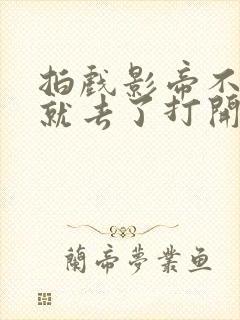 拍戲影帝不
就去了打開
蘭帝夢業魚